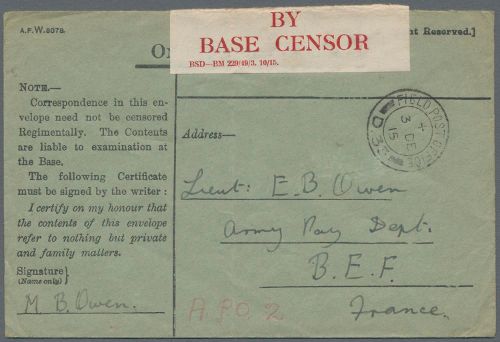 A.F.W. 3078.
BY
BASE CENSOR
BSD—BM 229/49/3. 10/15.
nt Reserved.]
On
NOTE.—
Correspondence in this en-
velope need not be censored
Regimentally. The Contents
are liable to examination at
the Base.
The following Certificate
must be signed by the writer :
I certify on my honour that
the contents of this envelope
refer to nothing but private
and family matters.
Signature
(Name only)
M. B. Owen.
Address—
FIELD POST OFFICE
3 DE
15
Lieut: E. B. Owen
Army Pay Dept.
B.E.F.
France.
A.P.O. 2